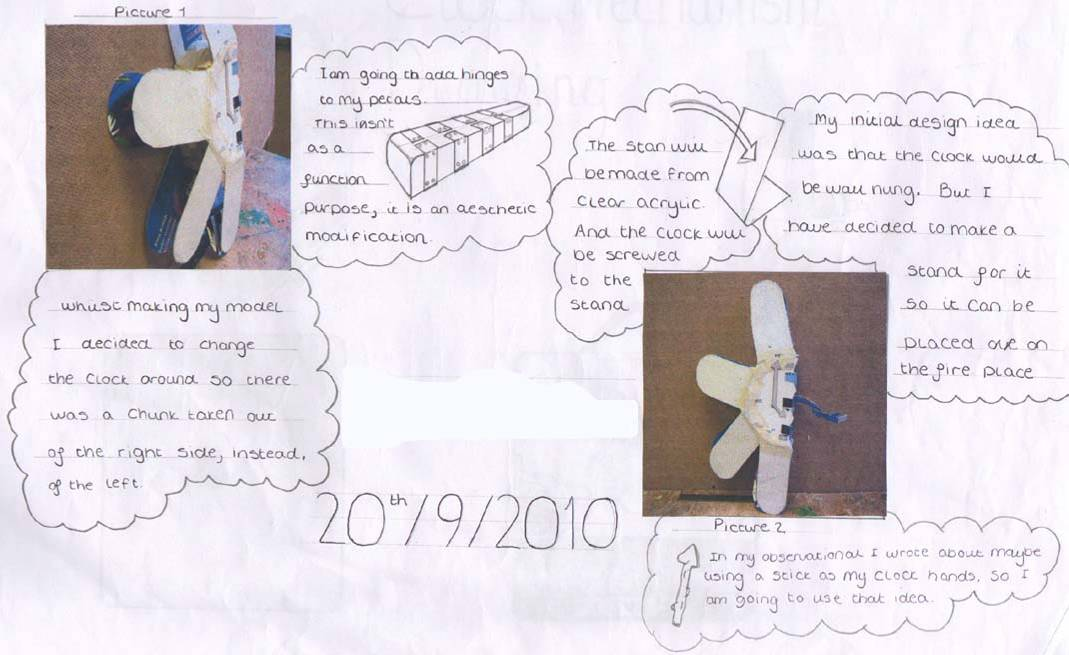 Picture 1
I am going to add hinges
to my petals.
This isn't
as a
function
purpose, it is an aesthetic
modification.
The Stan will
be made from
clear acrylic.
And the clock will
be screwed
to the
stand
My initial design idea
was that the clock would
be wall hung. But I
have decided to make a
stand for it
so it can be
placed out on
the fire place
whilst making my model
I decided to change
the clock around so there
was a chunk taken out
of the right side, instead,
of the left.
20th/9/2010
Picture 2
In my observational I wrote about maybe
using a stick as my clock hands, so I
am going to use that idea.